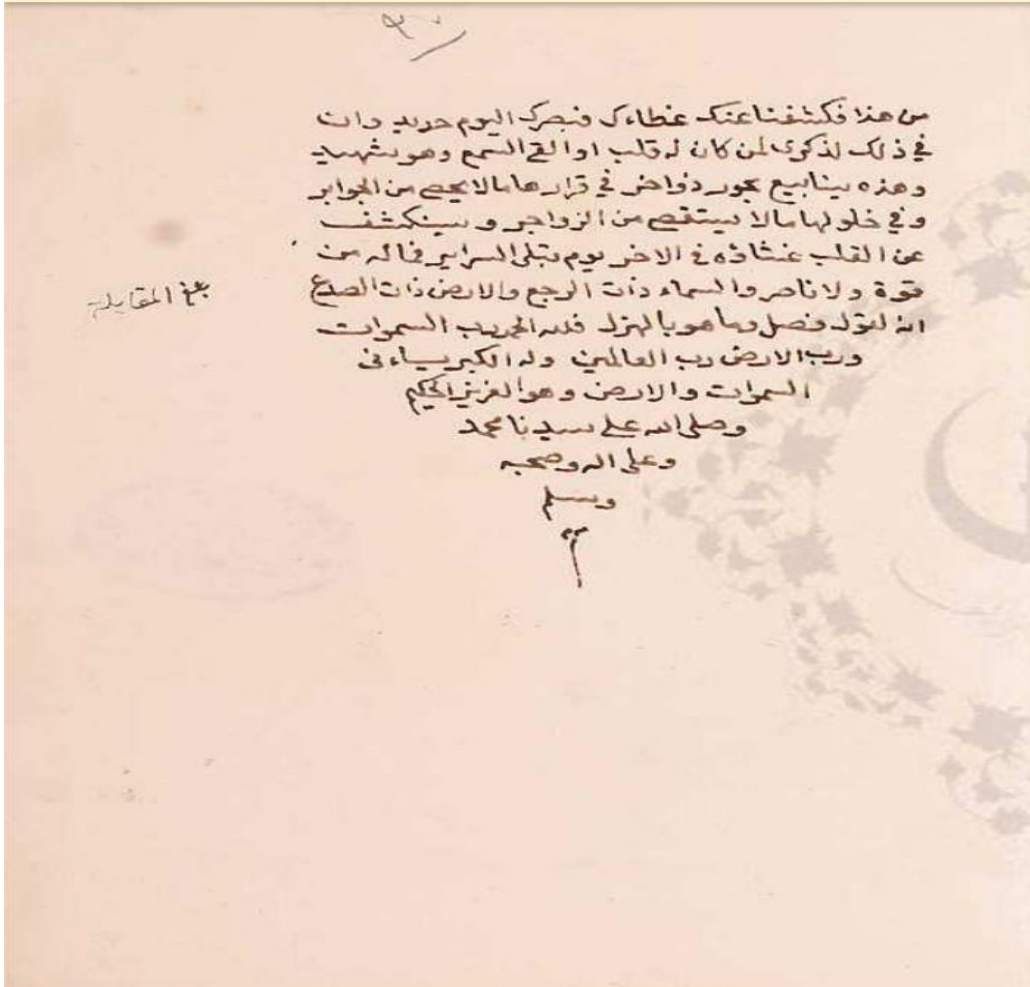 من هذا فكشفنا عنك غطاءك فبصرك اليوم حديد وان
في ذلك لذكرى لمن كان له قلب او القى السمع وهو شهيد
وهذه ينابيع بحور ذواخر في قرارها مالا يحصى من الجوابر
وفي خلولها مالا يستقصى من الزواجر و سينكشف
عن القلب غشاؤه في الاخر يوم تبلى السراير فماله من
قوة ولا ناصر والسماء ذات الرجع والارض ذات الصدع
انه لقول فصل وما هو بالهزل فلله الحمد رب السموات
ورب الارض رب العالمين وله الكبرياء في
السموات والارض وهو العزيز الحكيم
وصلى الله على سيدنا محمد
وعلى اله وصحبه
وسلم
م
بلغ المقابلة